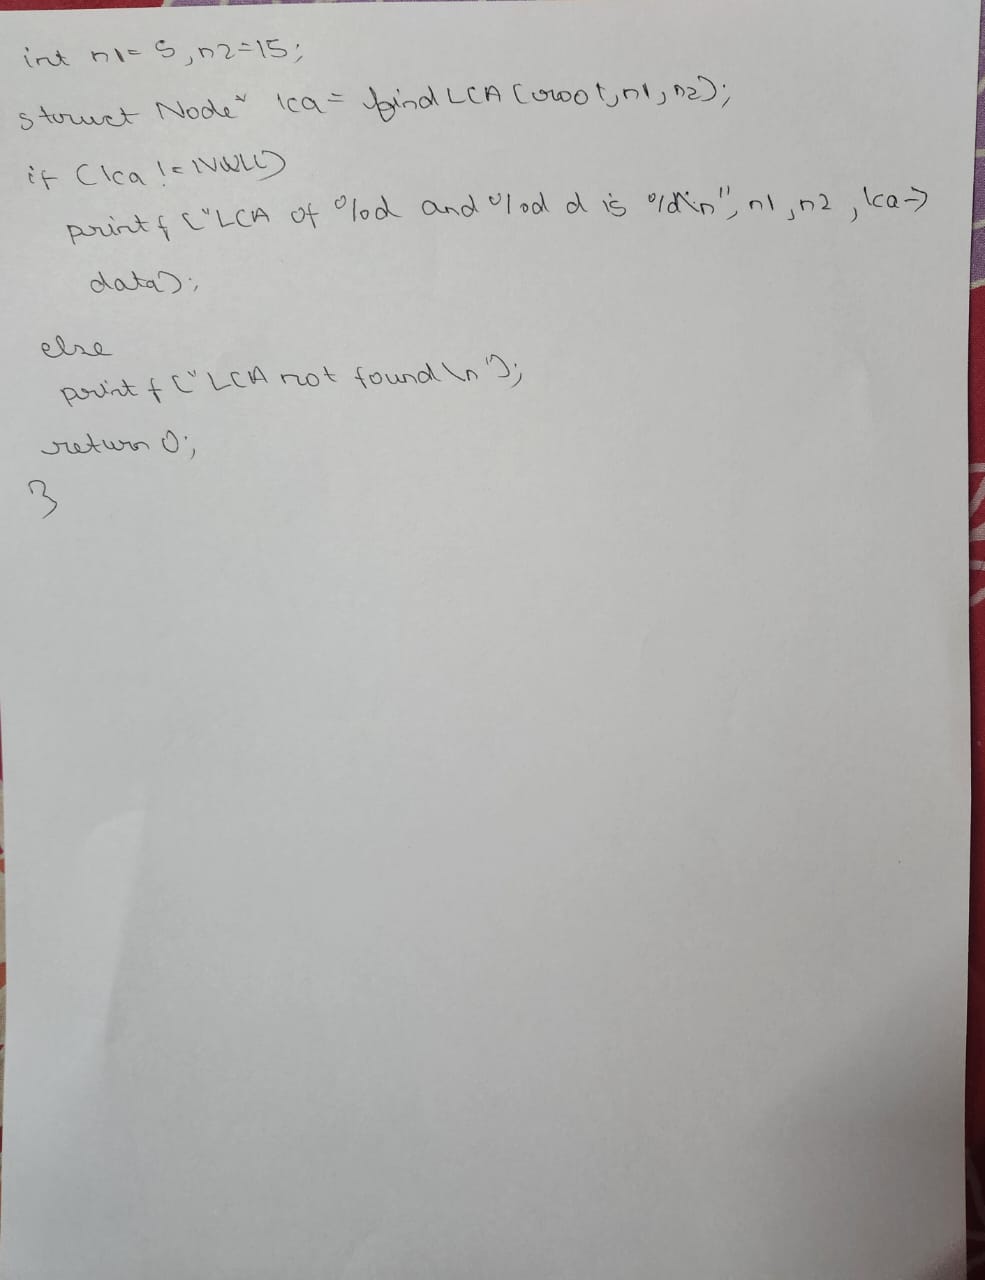 int n1= 5, n2=15;
struct Node* lca = find LCA (root, n1, n2);
if (lca != NULL)
printf ("LCA of %d and %d d is %d\n", n1, n2, lca->
data);
else
printf ("LCA not found \n");
return 0;
}